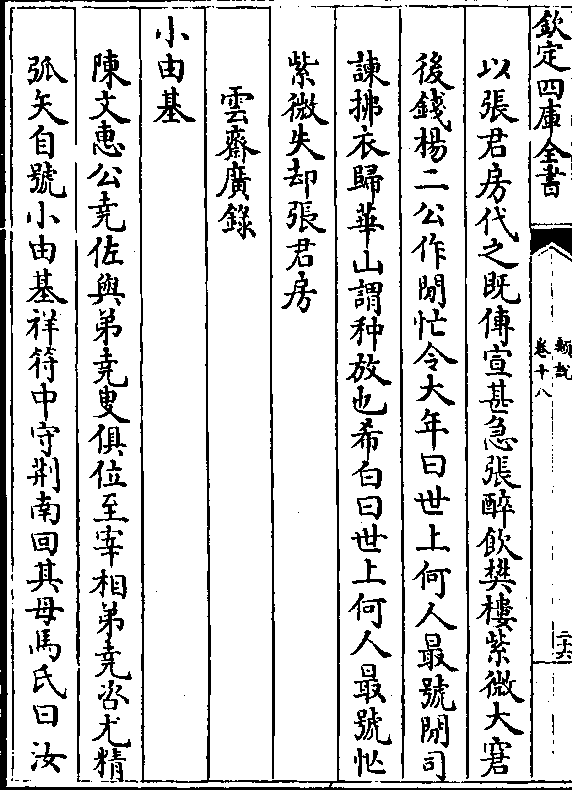 欽定四庫全書
類說
卷十八
二十六
以張君房代之既傳宣甚急張醉飲樊樓紫微大窘
後錢楊二公作閒忙令大年曰世上何人最號閒司
諫拂衣歸華山謂种放也希白曰世上何人最號忙
紫微失却張君房
雲齋廣錄
小由基
陳文惠公堯佐與弟堯叟俱位至宰相弟堯咨尤精
弧矢自號小由基祥符中守荆南回其母馮氏曰汝